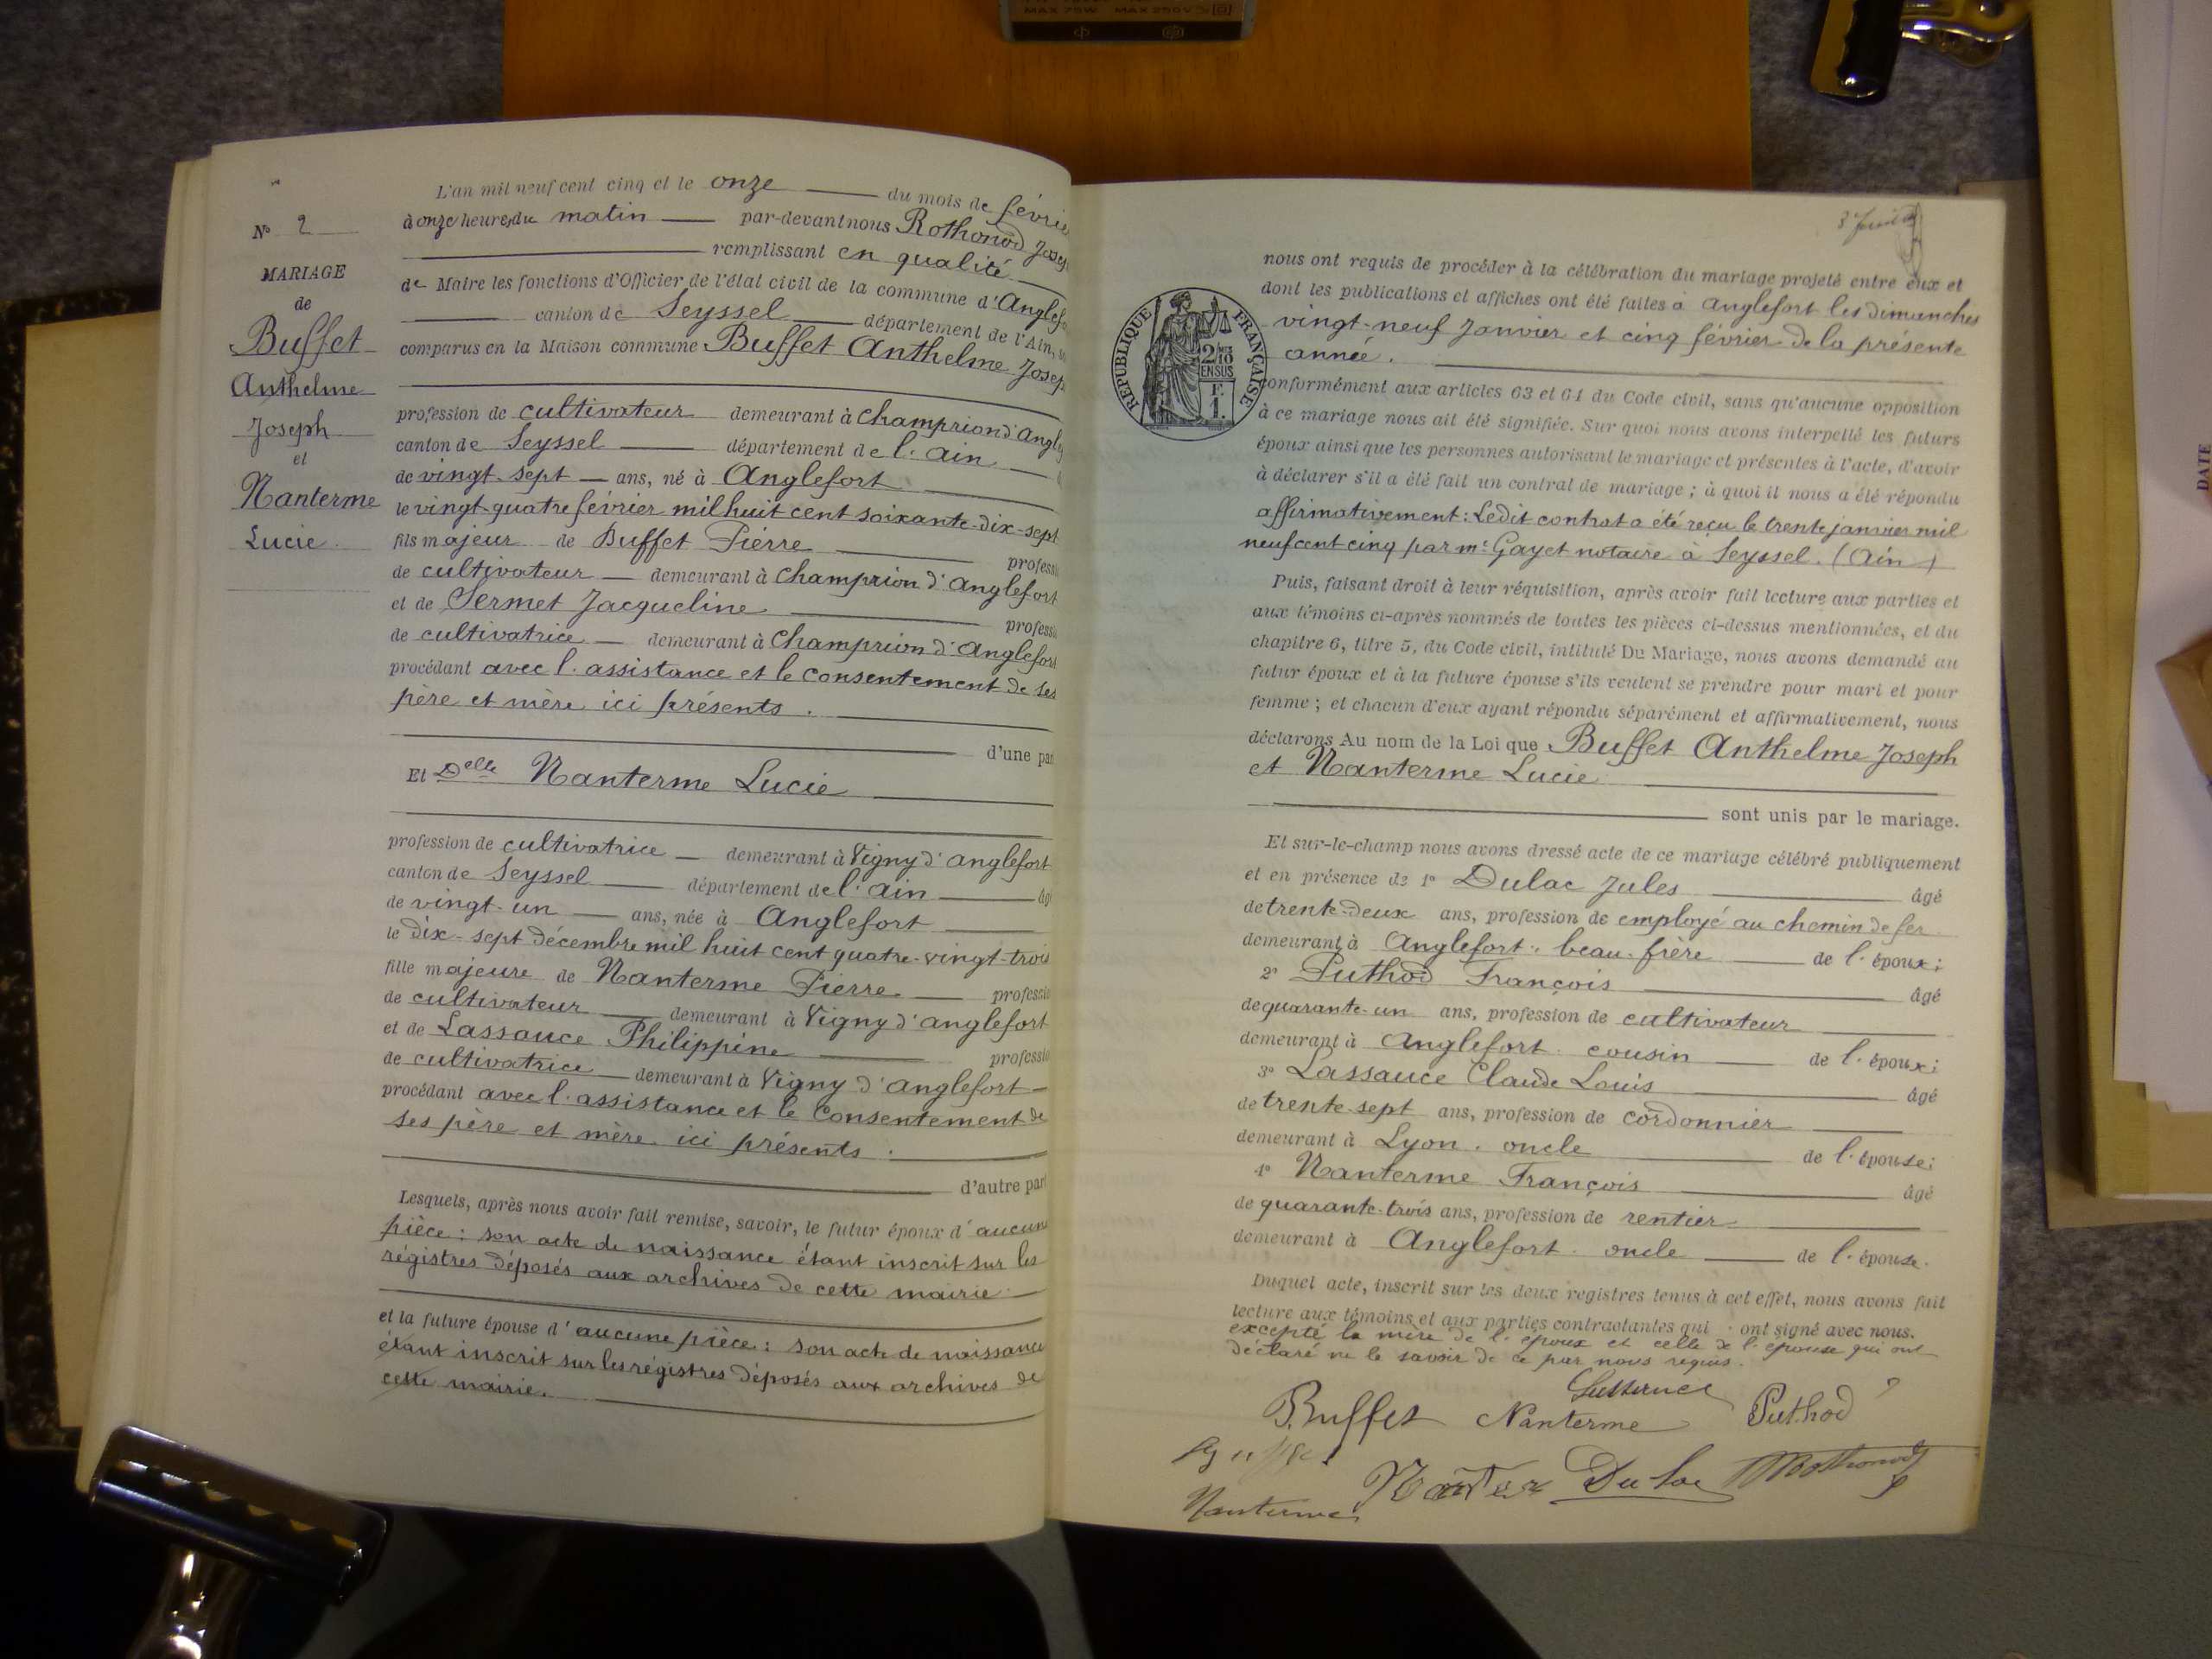 MAX 75W MAX 250V
L'an mil neuf cent cinq et le onze du mois de févrie
à onze heures du matin par-devant nous Rothonod Josep
remplissant en qualité
de Maire les fonctions d'Officier de l'état civil de la commune d'Anglefo
canton de Seyssel département de l'Ain,
comparus en la Maison commune Buffet Anthelme Josep
profession de cultivateur demeurant à Champrion d'Angle
canton de Seyssel département de l'Ain
de vingt-sept ans, né à Anglefort
le vingt-quatre février mil huit cent soixante-dix-sept
fils majeur de Buffet Pierre professi
de cultivateur demeurant à Champrion d'Anglefort
et de Sermet Jacqueline professi
de cultivatrice demeurant à Champrion d'Anglefort
procédant avec l'assistance et le consentement de ses
père et mère ici présents.
d'une par
Et Delle Nanterme Lucie
profession de cultivatrice demeurant à Vigny d'Anglefort
canton de Seyssel département de l'Ain âg
de vingt-un ans, née à Anglefort
le dix-sept décembre mil huit cent quatre-vingt-trois
fille majeure de Nanterme Pierre professio
de cultivateur demeurant à Vigny d'Anglefort
et de Lassauce Philippine professio
de cultivatrice demeurant à Vigny d'Anglefort
procédant avec l'assistance et le consentement de
ses père et mère ici présents.
d'autre part
Lesquels, après nous avoir fait remise, savoir, le futur époux d'aucune
pièce : son acte de naissance étant inscrit sur les
régistres déposés aux archives de cette mairie
et la future épouse d'aucune pièce : son acte de naissance
étant inscrit sur les régistres déposés aux archives de
cette mairie.
No 2
MARIAGE
de
Buffet
Anthelme
Joseph
et
Nanterme
Lucie
RÉPUBLIQUE FRANÇAISE
2/10
EN SUS
F.
1.
nous ont requis de procéder à la célébration du mariage projeté entre eux et
dont les publications et affiches ont été faites à Anglefort les dimanches
vingt-neuf Janvier et cinq février de la présente
année.
conformément aux articles 63 et 64 du Code civil, sans qu'aucune opposition
à ce mariage nous ait été signifiée. Sur quoi nous avons interpellé les futurs
époux ainsi que les personnes autorisant le mariage et présentes à l'acte, d'avoir
à déclarer s'il a été fait un contrat de mariage ; à quoi il nous a été répondu
affirmativement : Ledit contrat a été reçu le trente janvier mil
neuf cent cinq par me Gayet notaire à Seyssel. (Ain)
Puis, faisant droit à leur réquisition, après avoir fait lecture aux parties et
aux témoins ci-après nommés de toutes les pièces ci-dessus mentionnées, et du
chapitre 6, titre 5, du Code civil, intitulé Du Mariage, nous avons demandé au
futur époux et à la future épouse s'ils veulent se prendre pour mari et pour
femme ; et chacun d'eux ayant répondu séparément et affirmativement, nous
déclarons Au nom de la Loi que Buffet Anthelme Joseph
et Nanterme Lucie
sont unis par le mariage.
Et sur-le-champ nous avons dressé acte de ce mariage célébré publiquement
et en présence de 1° Dulac Jules âgé
de trente-deux ans, profession de employé au chemin de fer
demeurant à Anglefort, beau-frère de l'époux ;
2° Puthod François âgé
de quarante-un ans, profession de cultivateur
demeurant à Anglefort. cousin de l'époux ;
3° Lassauce Claude Louis âgé
de trente-sept ans, profession de cordonnier
demeurant à Lyon. oncle de l'épouse ;
4° Nanterme François âgé
de quarante-trois ans, profession de rentier
demeurant à Anglefort. oncle de l'épouse.
Duquel acte, inscrit sur les deux registres tenus à cet effet, nous avons fait
lecture aux témoins et aux parties contractantes qui ont signé avec nous.
excepté la mère de l'époux et celle de l'épouse qui ont
déclaré ne le savoir de ce par nous requis.
B. Buffet Nanterme Puthod
Dulac Rothonod
Nanterme
DATE